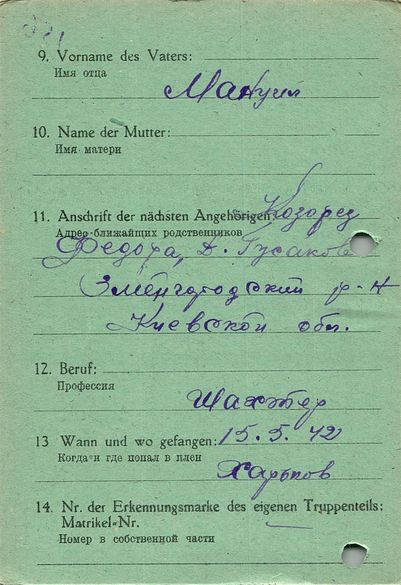 9. Vorname des Vaters:
Имя отца
Мануил
10. Name der Mutter:
Имя матери
11. Anschrift der nächsten Angehörigen: Козорез
Адрес ближайших родственников
Федора, д. Гусаково
Звенгородский р-н
Киевской обл.
12. Beruf:
Профессия
Шахтер
13 Wann und wo gefangen: 15.5.42
Когда и где попал в плен
Харьков
14. Nr. der Erkennungsmarke des eigenen Truppenteils:
Matrikel-Nr.
Номер в собственной части